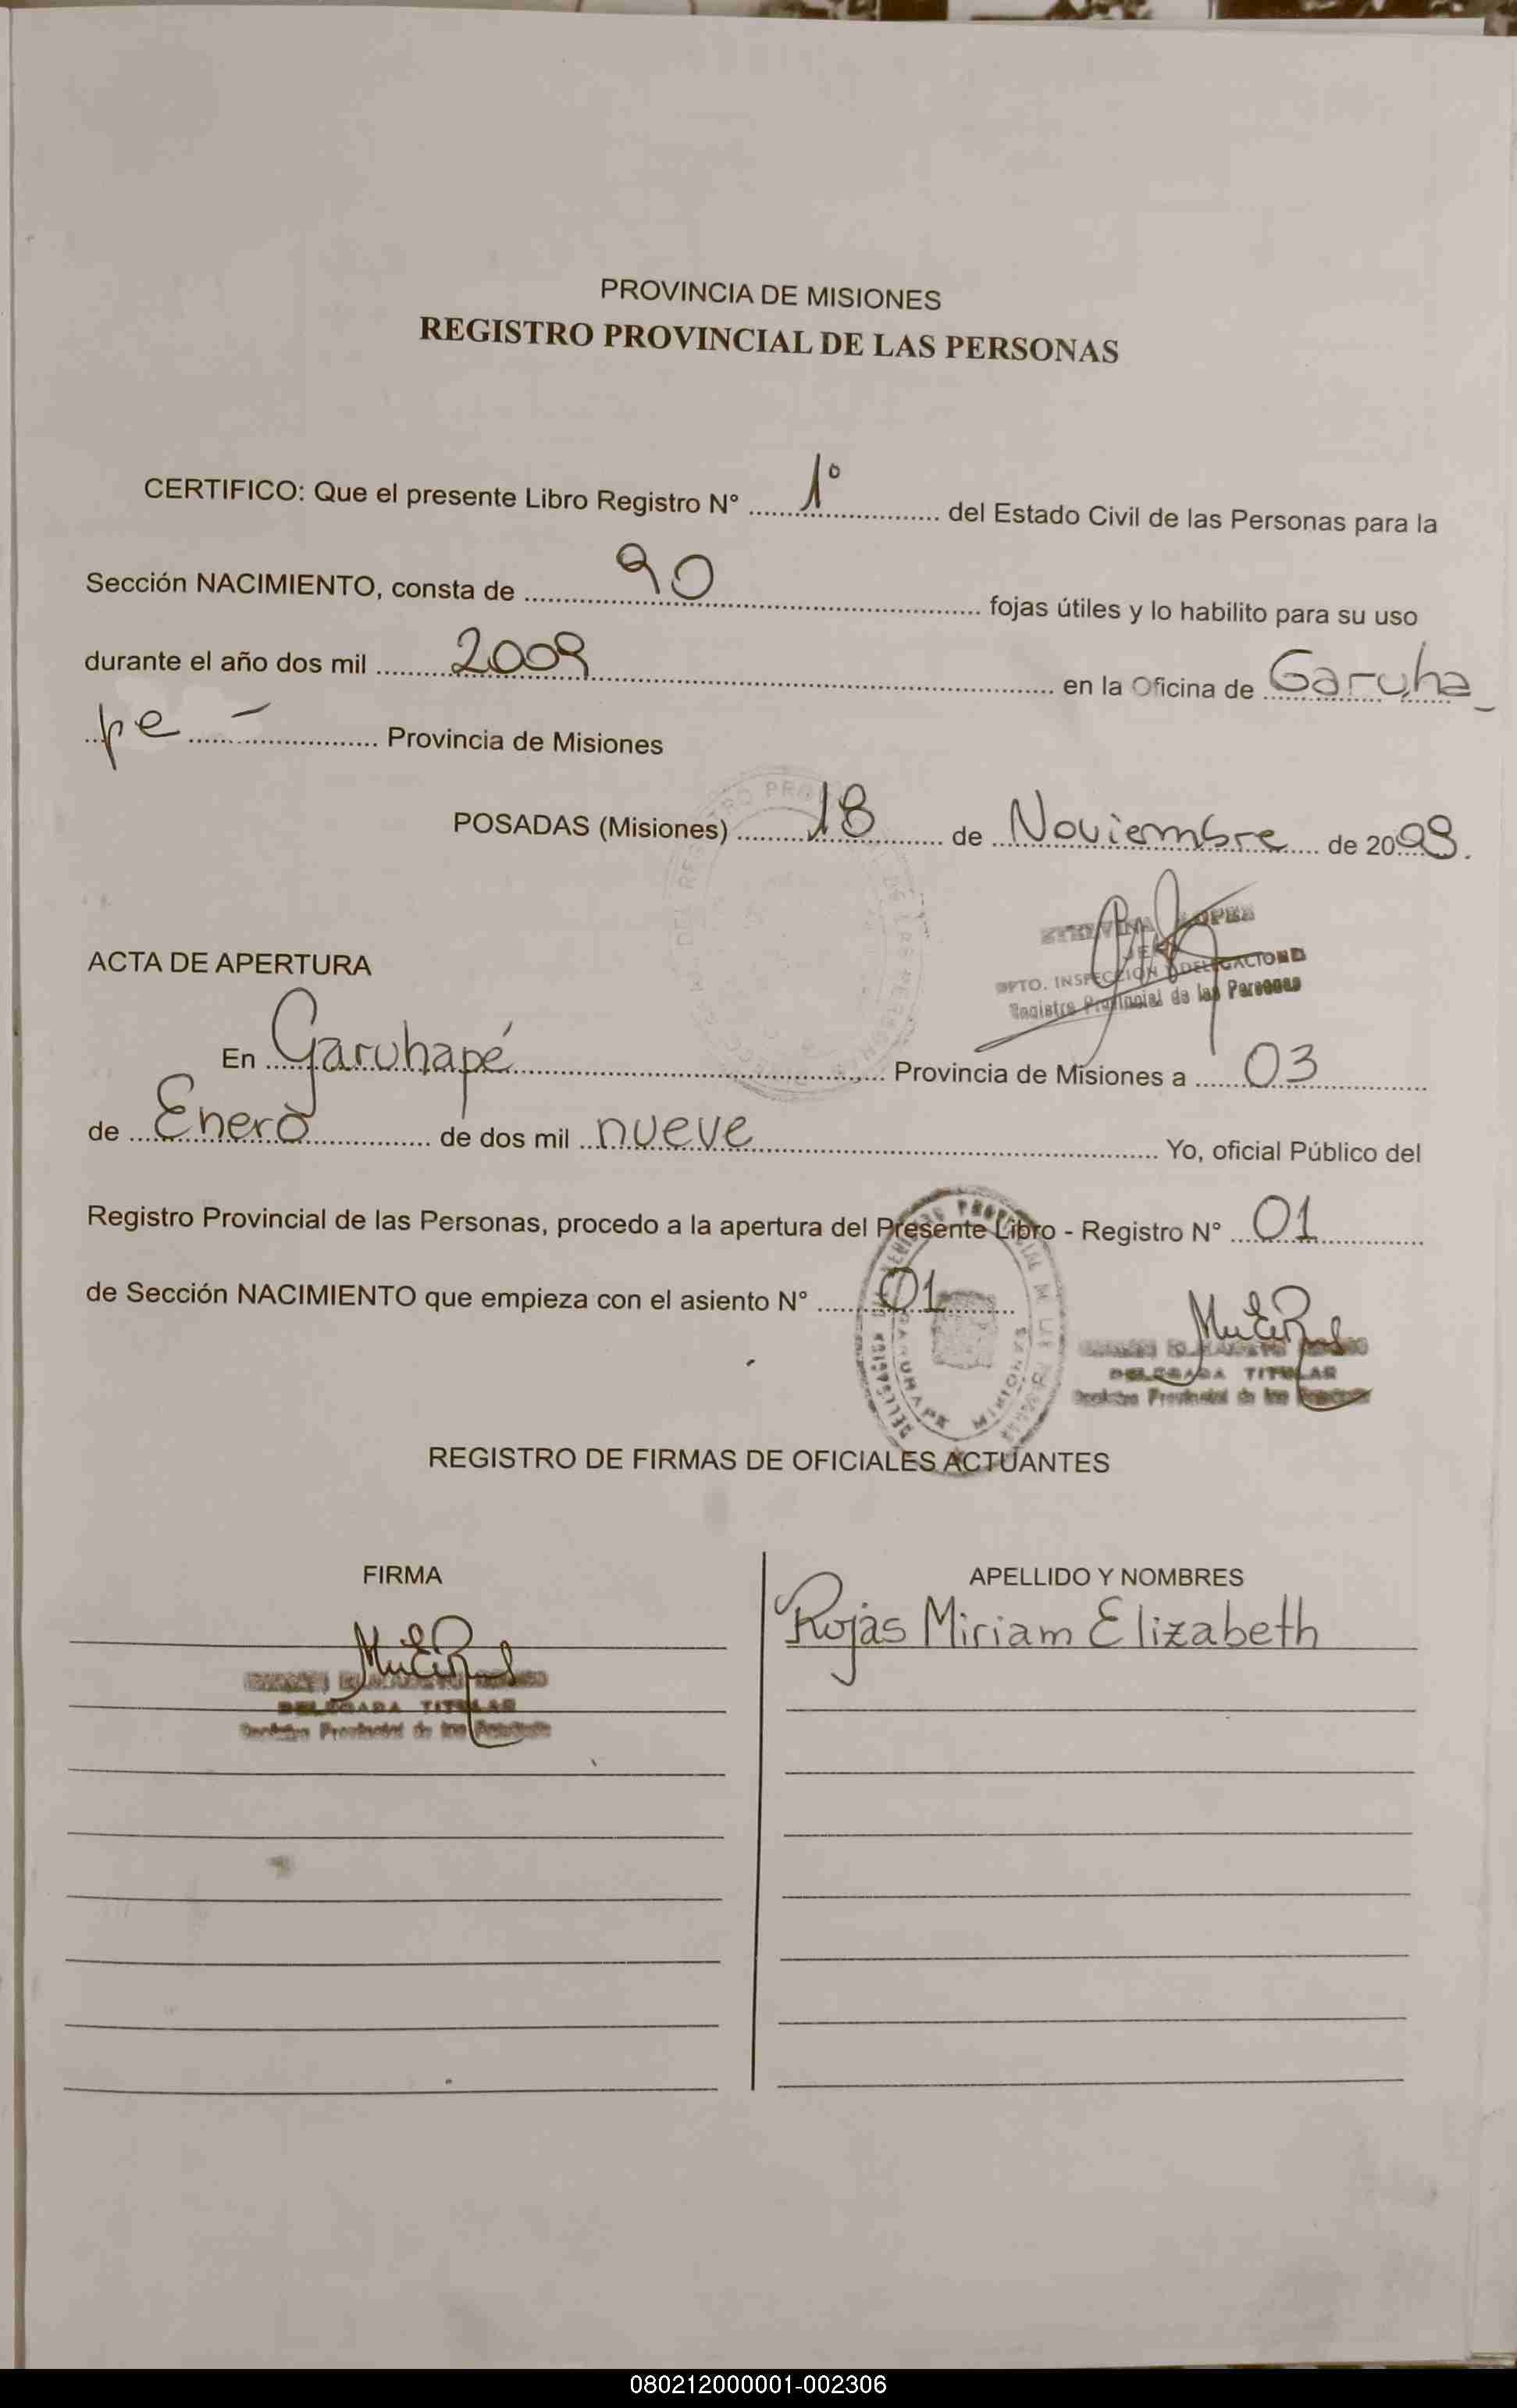 PROVINCIA DE MISIONES
REGISTRO PROVINCIAL DE LAS PERSONAS
CERTIFICO: Que el presente Libro Registro N° 1° del Estado Civil de las Personas para la
Sección NACIMIENTO, consta de 90 fojas útiles y lo habilito para su uso
durante el año dos mil 2009 en la Oficina de Garuha_
pe - Provincia de Misiones
POSADAS (Misiones) 18 de Noviembre de 2009.
JEFA
DPTO. INSPECCION Y DELEGACIONES
Registro Provincial de las Personas
ACTA DE APERTURA
En Garuhapé Provincia de Misiones a 03
de Enero de dos mil nueve Yo, oficial Público del
Registro Provincial de las Personas, procedo a la apertura del Presente Libro - Registro N° 01
de Sección NACIMIENTO que empieza con el asiento N° 01
GARUHAPE MISIONES
DELEGADA TITULAR
Registro Provincial de las Personas
REGISTRO DE FIRMAS DE OFICIALES ACTUANTES
FIRMA APELLIDO Y NOMBRES
Rojas Miriam Elizabeth
DELEGADA TITULAR
Registro Provincial de las Personas
080212000001-002306